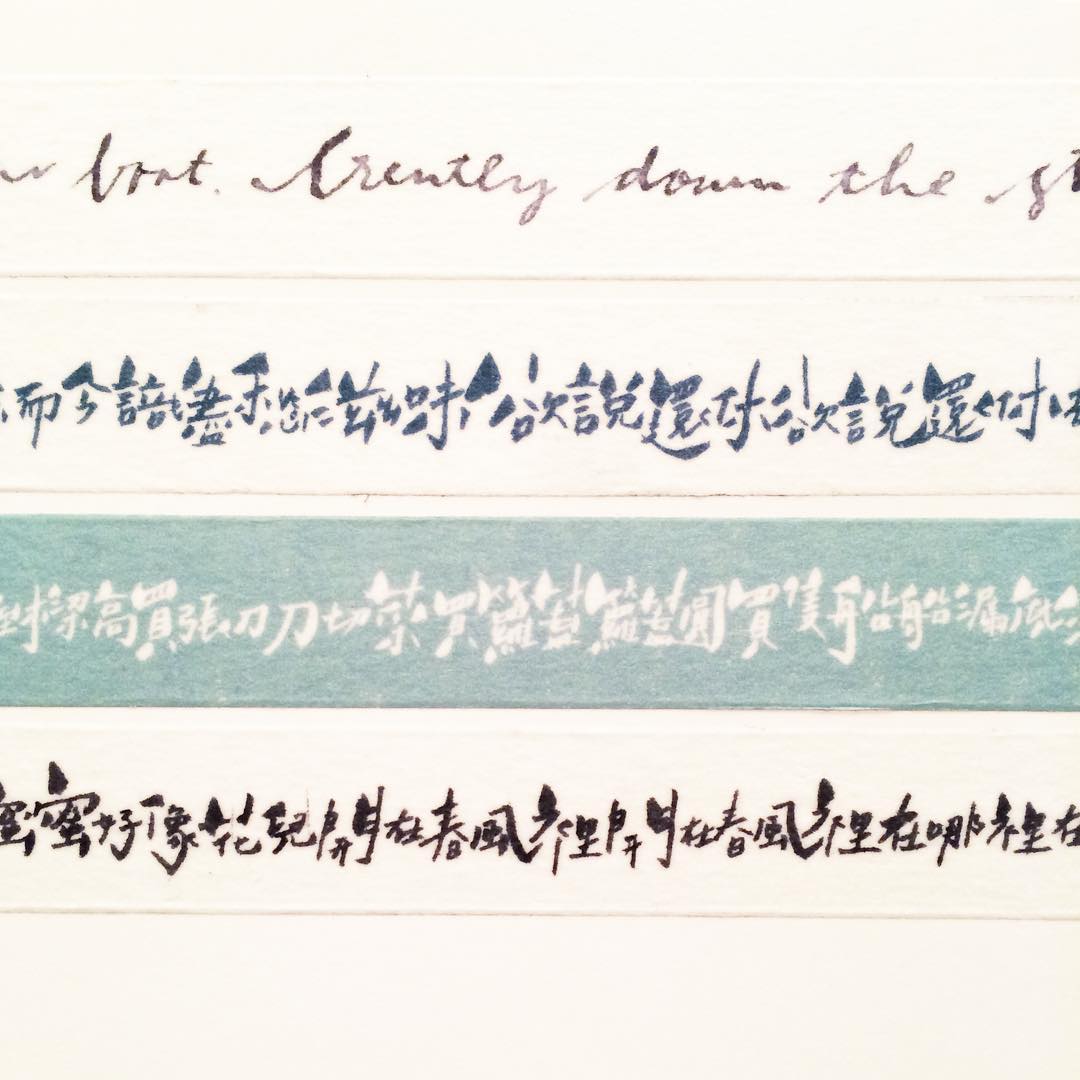 boat. Gently down the st
而今識盡愁滋味欲說還休欲說還休
樑高買張刀刀切菜買籮蓋籮蓋圓買隻船船漏底
蜜蜜好像花兒開在春風裡開在春風裡在哪裡在